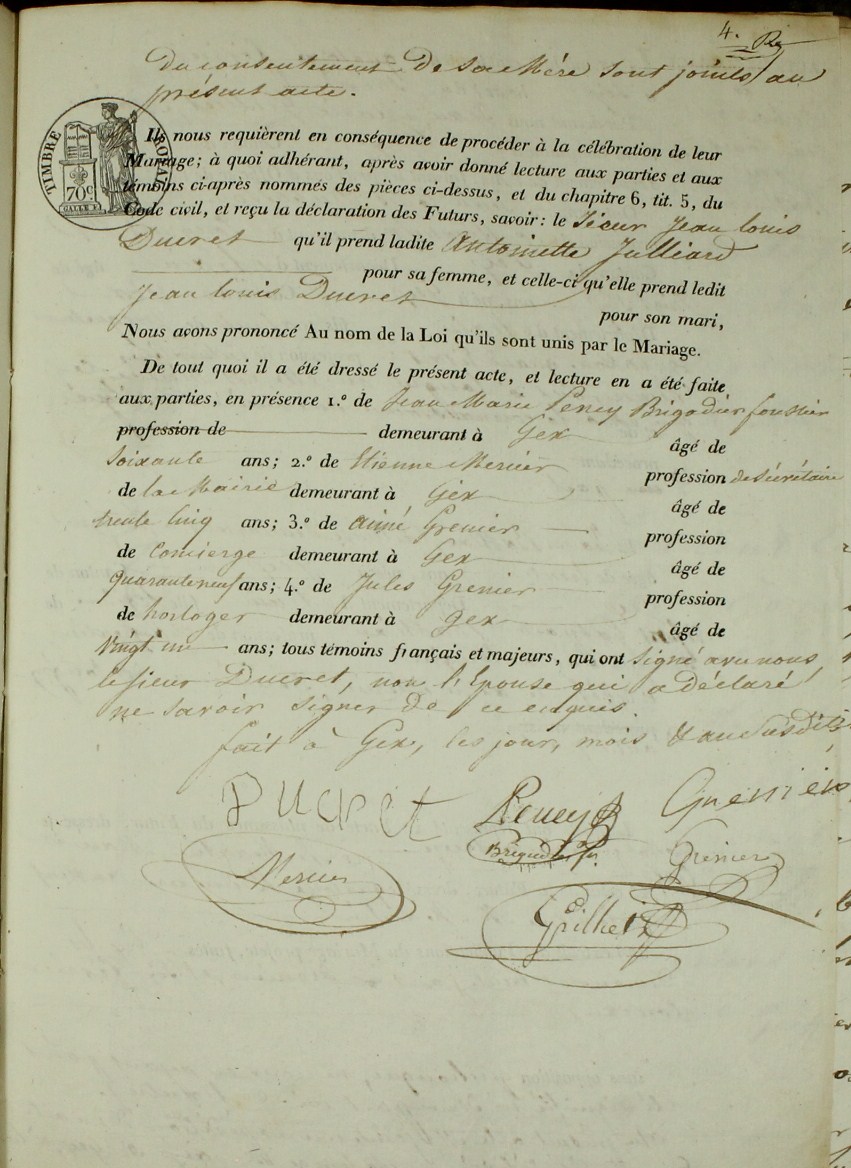 4.
Du consentement De sa Mére sont joints au
présent acte.
TIMBRE ROYAL
70c
Ils nous requièrent en conséquence de procéder à la célébration de leur
Mariage; à quoi adhérant, après avoir donné lecture aux parties et aux
témoins ci-après nommés des pièces ci-dessus, et du chapitre 6, tit. 5, du
Code civil, et reçu la déclaration des Futurs, savoir: le Sieur Jean louis
Ducret qu'il prend ladite Antoinette Julliard
pour sa femme, et celle-ci qu'elle prend ledit
Jean louis Ducret
pour son mari,
Nous avons prononcé Au nom de la Loi qu'ils sont unis par le Mariage.
De tout quoi il a été dressé le présent acte, et lecture en a été faite
aux parties, en présence 1.º de Jean Marie Peney Brigadier forestier
profession de demeurant à Gex
âgé de
soixante ans; 2.º de Etienne Mercier
profession de Sécrétaire
de la Mairie demeurant à Gex
âgé de
trente cinq ans; 3.º de aimé Grenier
profession
de Concierge demeurant à Gex
âgé de
quarante neuf ans; 4.º de Jules Grenier
profession
de horloger demeurant à gex
âgé de
vingt un ans; tous témoins français et majeurs, qui ont signé avec nous,
le sieur Ducret, non l'Epouse qui a déclaré
ne savoir signer de ce enquis.
fait à Gex, les jour, mois & an susdits
Ducret Peney Grenier
Mercier Grenier